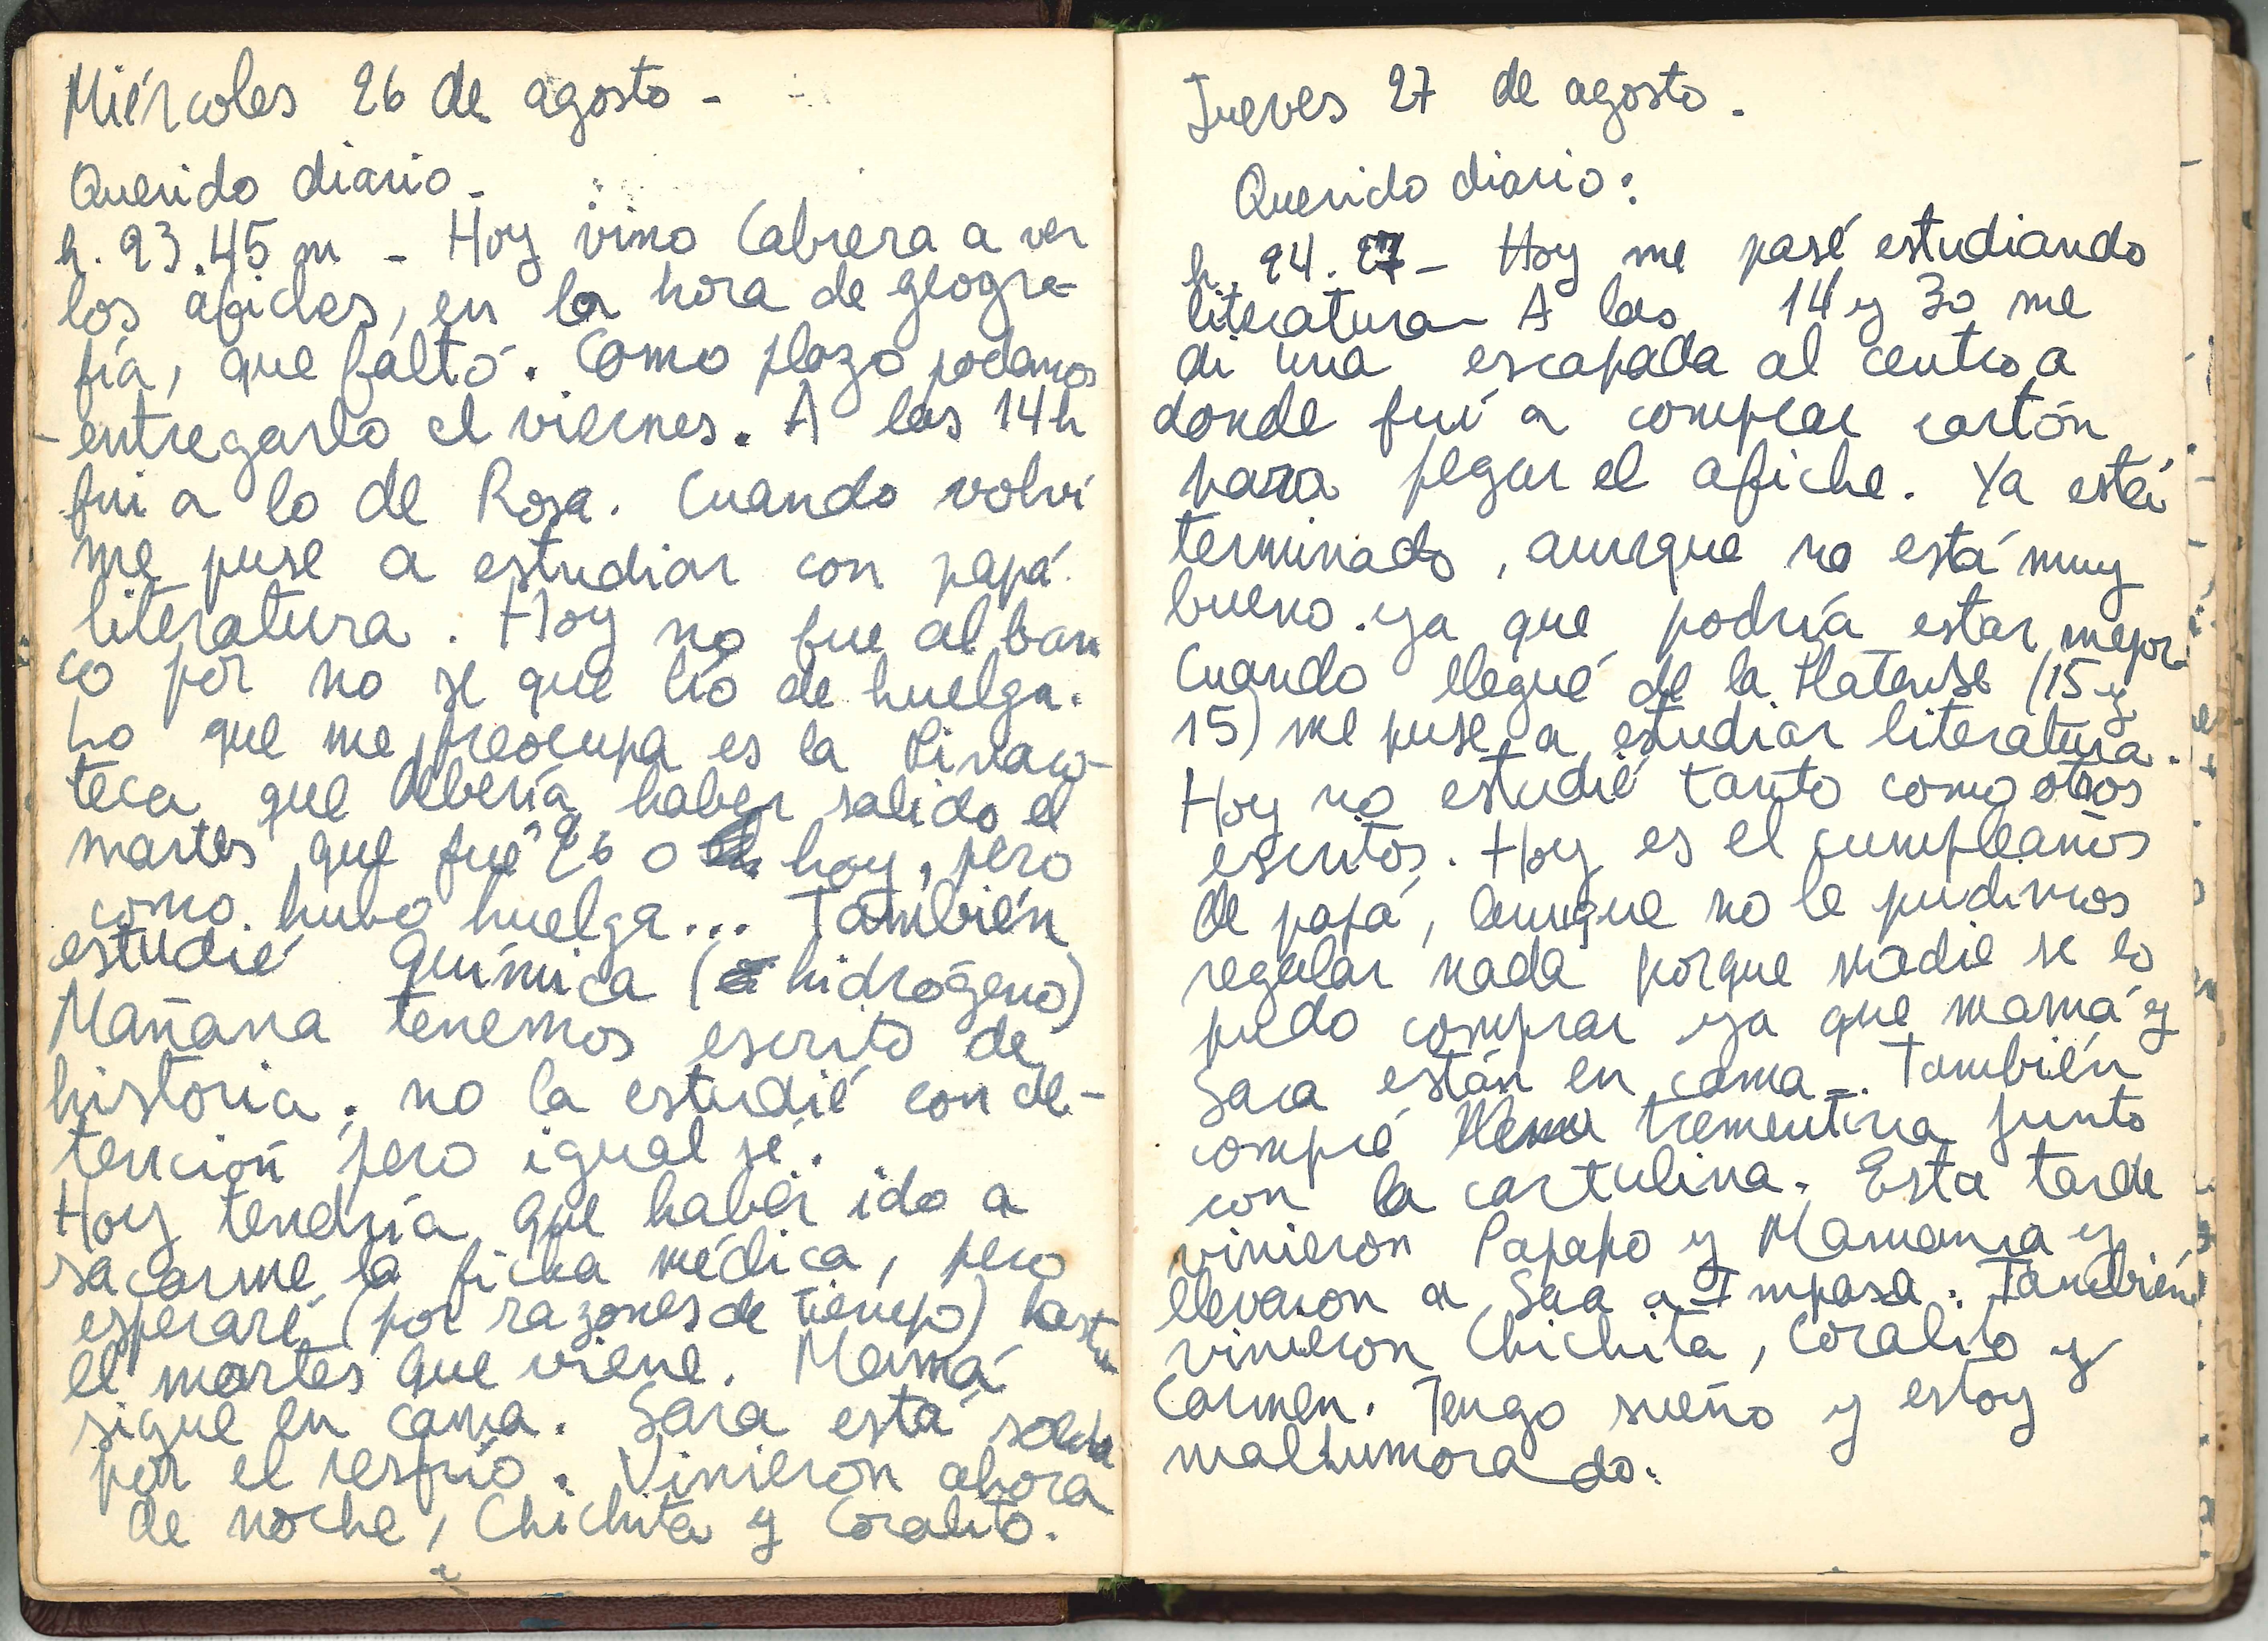 Miércoles 26 de agosto -
Querido diario -
h. 23.45 m - Hoy vino Cabrera a ver
los afiches, en la hora de geogra-
fía, que faltó. Como plazo podemos
entregarlo el viernes. A las 14 h
fui a lo de Rosa. Cuando volví
me puse a estudiar con papá
literatura. Hoy no fue al ban
co por no se que lío de huelga.
Lo que me preocupa es la Pinaco-
teca que debería haber salido el
martes que fué 26 o hoy, pero
como hubo huelga... También
estudié Química (hidrógeno)
Mañana tenemos escrito de
historia; no la estudié con de-
tención pero igual sé.
Hoy tendría que haber ido a
sacarme la ficha médica, pero
esperaré (por razones de tiempo) hasta
el martes que viene. Mamá
sigue en cama. Sara está
por el resfrío. Vinieron ahora
de noche, Chichita y Coralito.
Jueves 27 de agosto.
Querido diario:
h. 24.27 - Hoy me pasé estudiando
literatura - A las 14 y 30 me
di una escapada al centro, a
donde fuí a comprar cartón
para pegar el afiche. Ya está
terminado, aunque no está muy
bueno ya que podría estar mejor.
Cuando llegué de la Platense (15 y
15) me puse a estudiar literatura.
Hoy no estudié tanto como otros
escritos. Hoy es el cumpleaños
de papá, aunque no le pudimos
regalar nada porque nadie se lo
pudo comprar ya que mamá y
Sara están en cama -. También
compré trementina junto
con la cartulina. Esta tarde
vinieron Papapo y Mamama y
llevaron a Sara a Impasa. También
vinieron Chichita, Coralito y
Carmen. Tengo sueño y estoy
malhumorado.